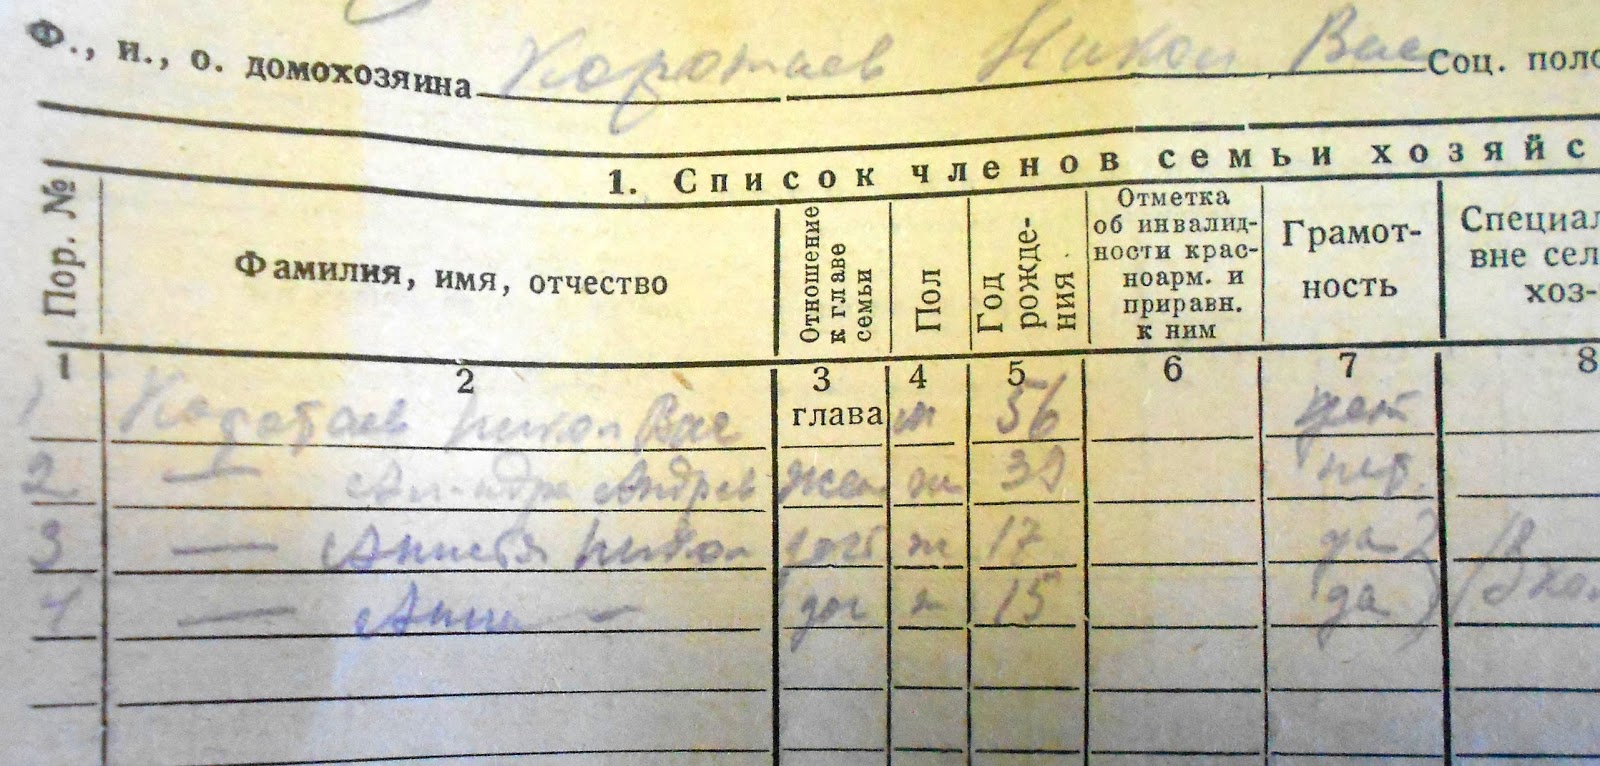 Ф., и., о. домохозяина Коротаев Никол Вас Соц. поло
1. Список членов семьи хозяйс
Пор. №
Фамилия, имя, отчество
Отношение к главе семьи
Пол
Год рождения.
Отметка
об инвалид-
ности крас-
ноарм. и
приравн.
к ним
Грамот-
ность
Специал
вне сел
хоз-
1 2 3 4 5 6 7 8
1 Коротаев Никол Вас глава м 56
2 — Андрев жен ж 39 нет.
3 — Никол ж 17 да
4 — Анна — доч ж 15 да